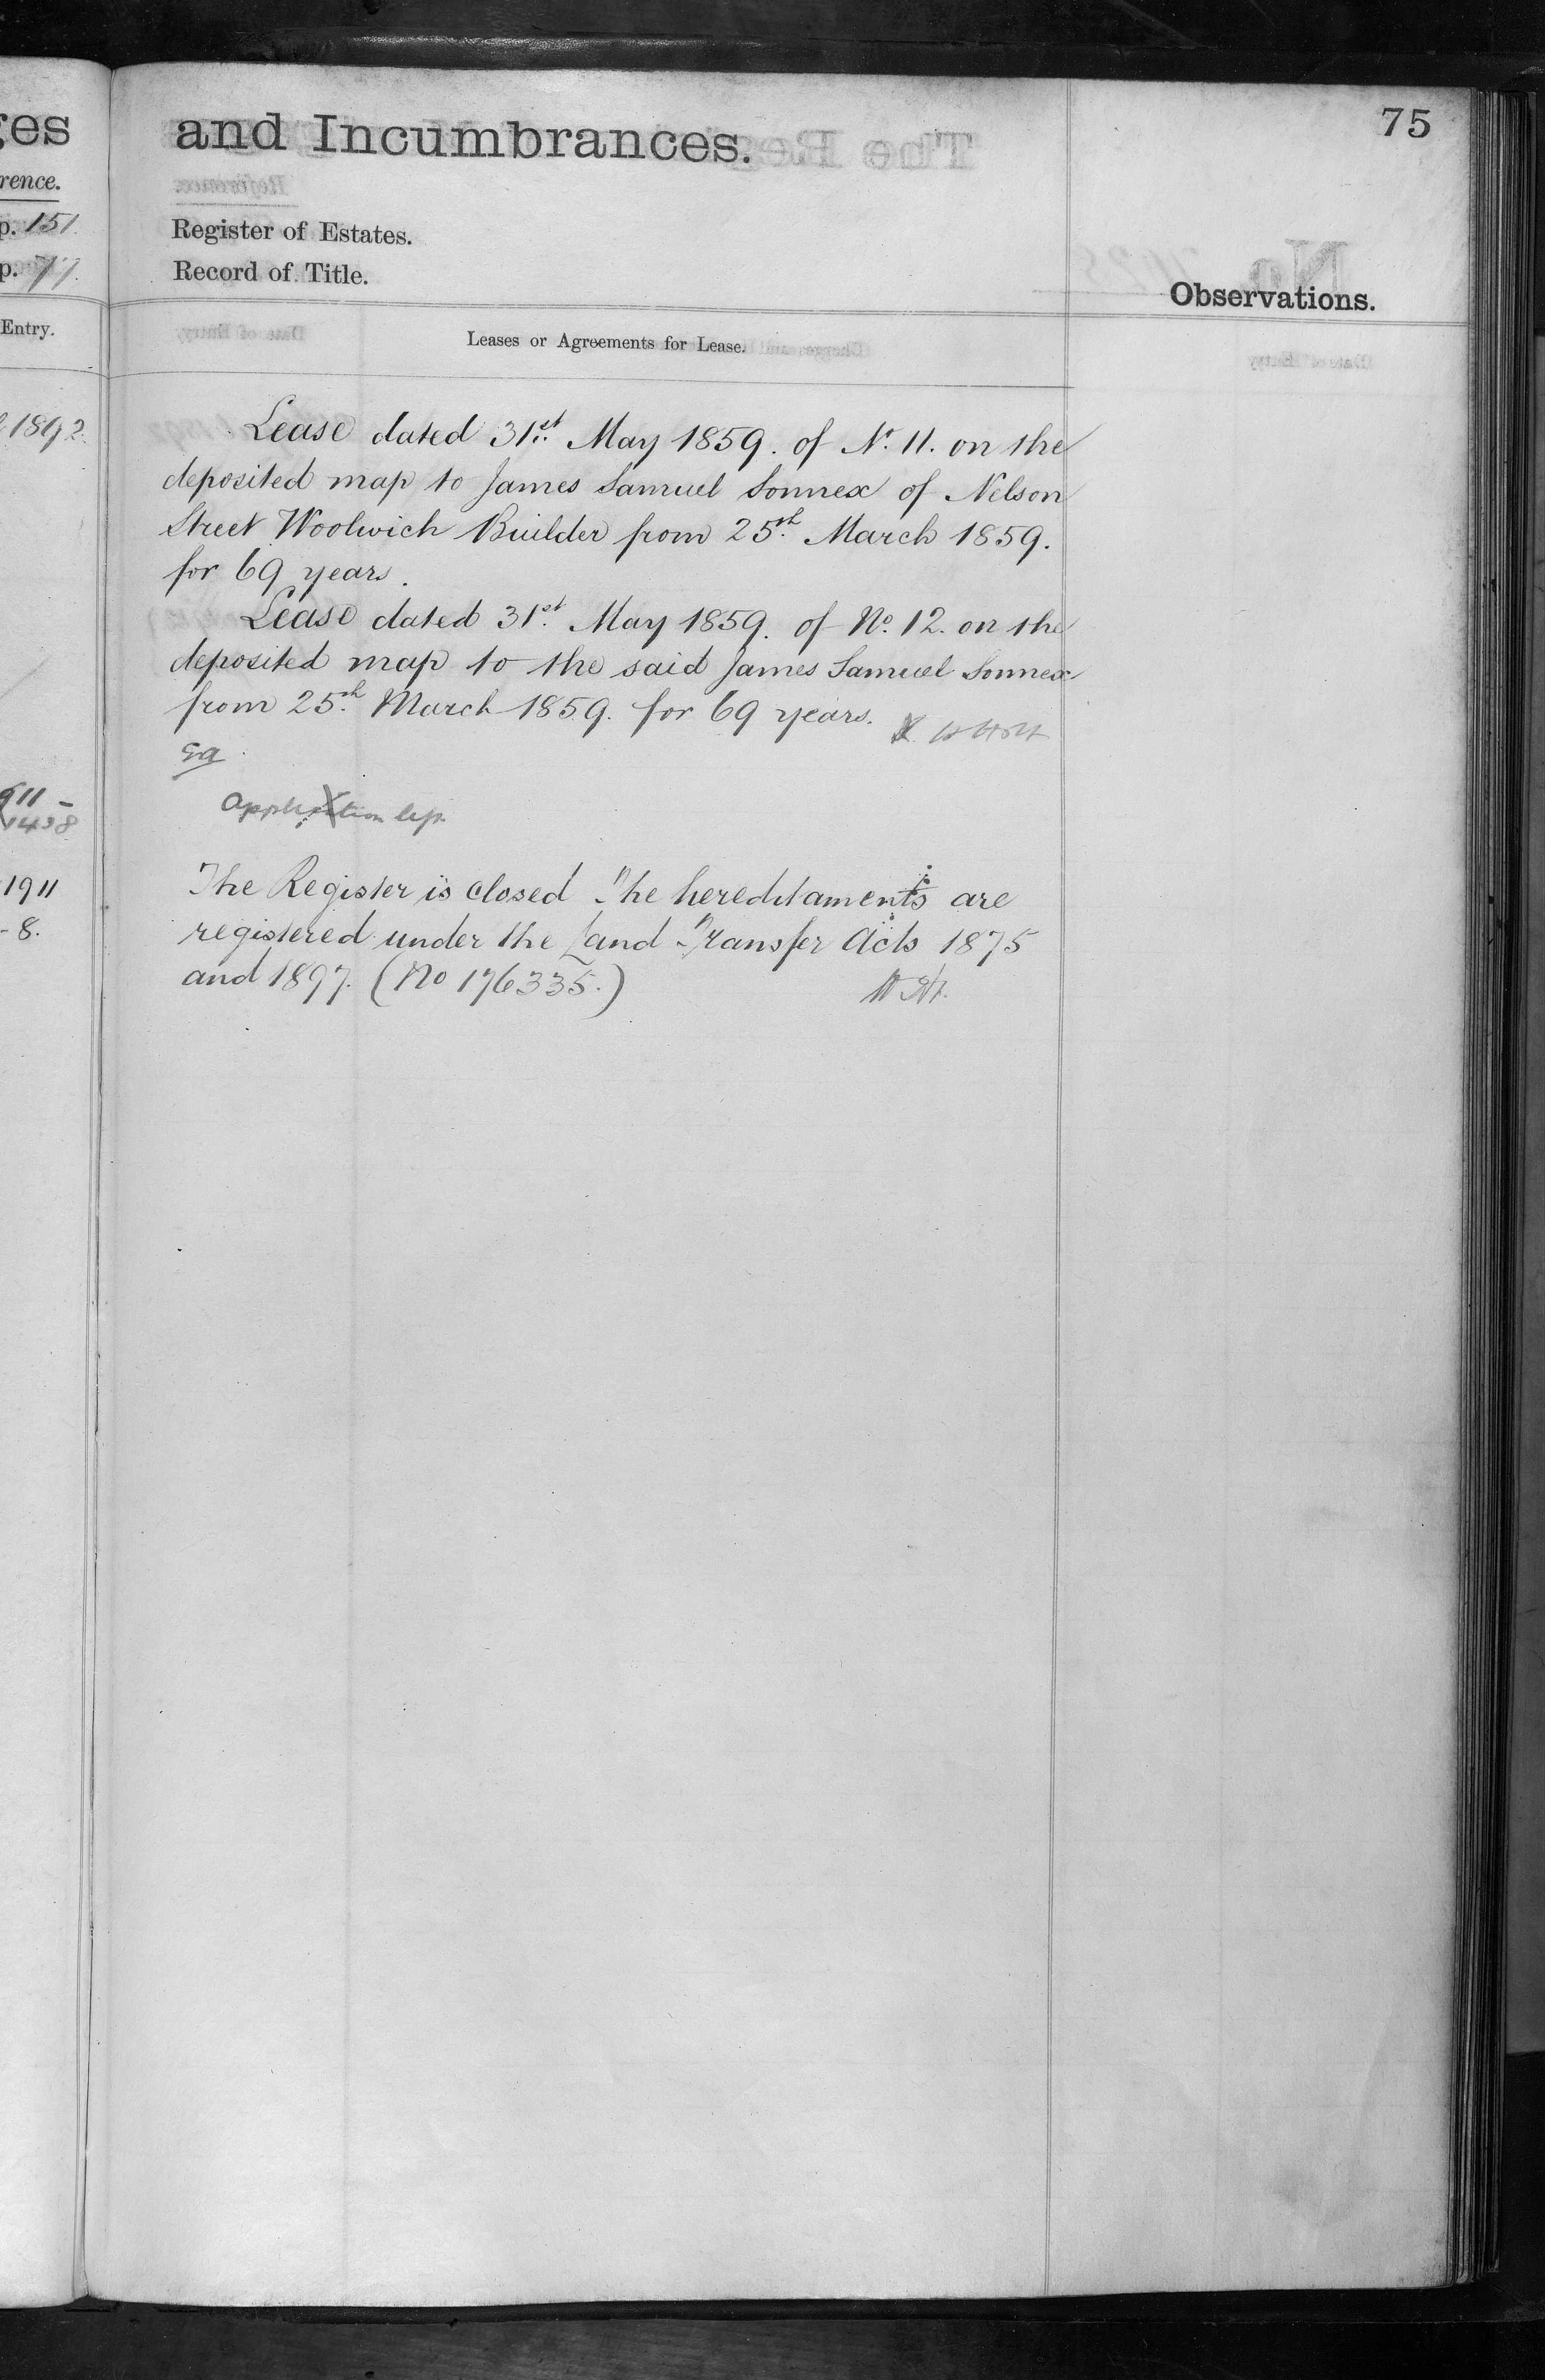 ges
rence.
p. 151.
p. 77.
Entry.
1892.
911 -
1438
1911
-8.
75
and Incumbrances.
Register of Estates.
Record of Title.
Observations.
Leases or Agreements for Lease.
Lease dated 31st May 1859. of No. 11. on the
deposited map to James Samuel Sonnex of Nelson
Street Woolwich Builder from 25th March 1859.
for 69 years.
Lease dated 31st May 1859. of No. 12. on the
deposited map to the said James Samuel Sonnex
from 25th March 1859. for 69 years.
Application
The Register is closed The hereditaments are
registered under the Land Transfer Acts 1875
and 1897. (No 176335.)